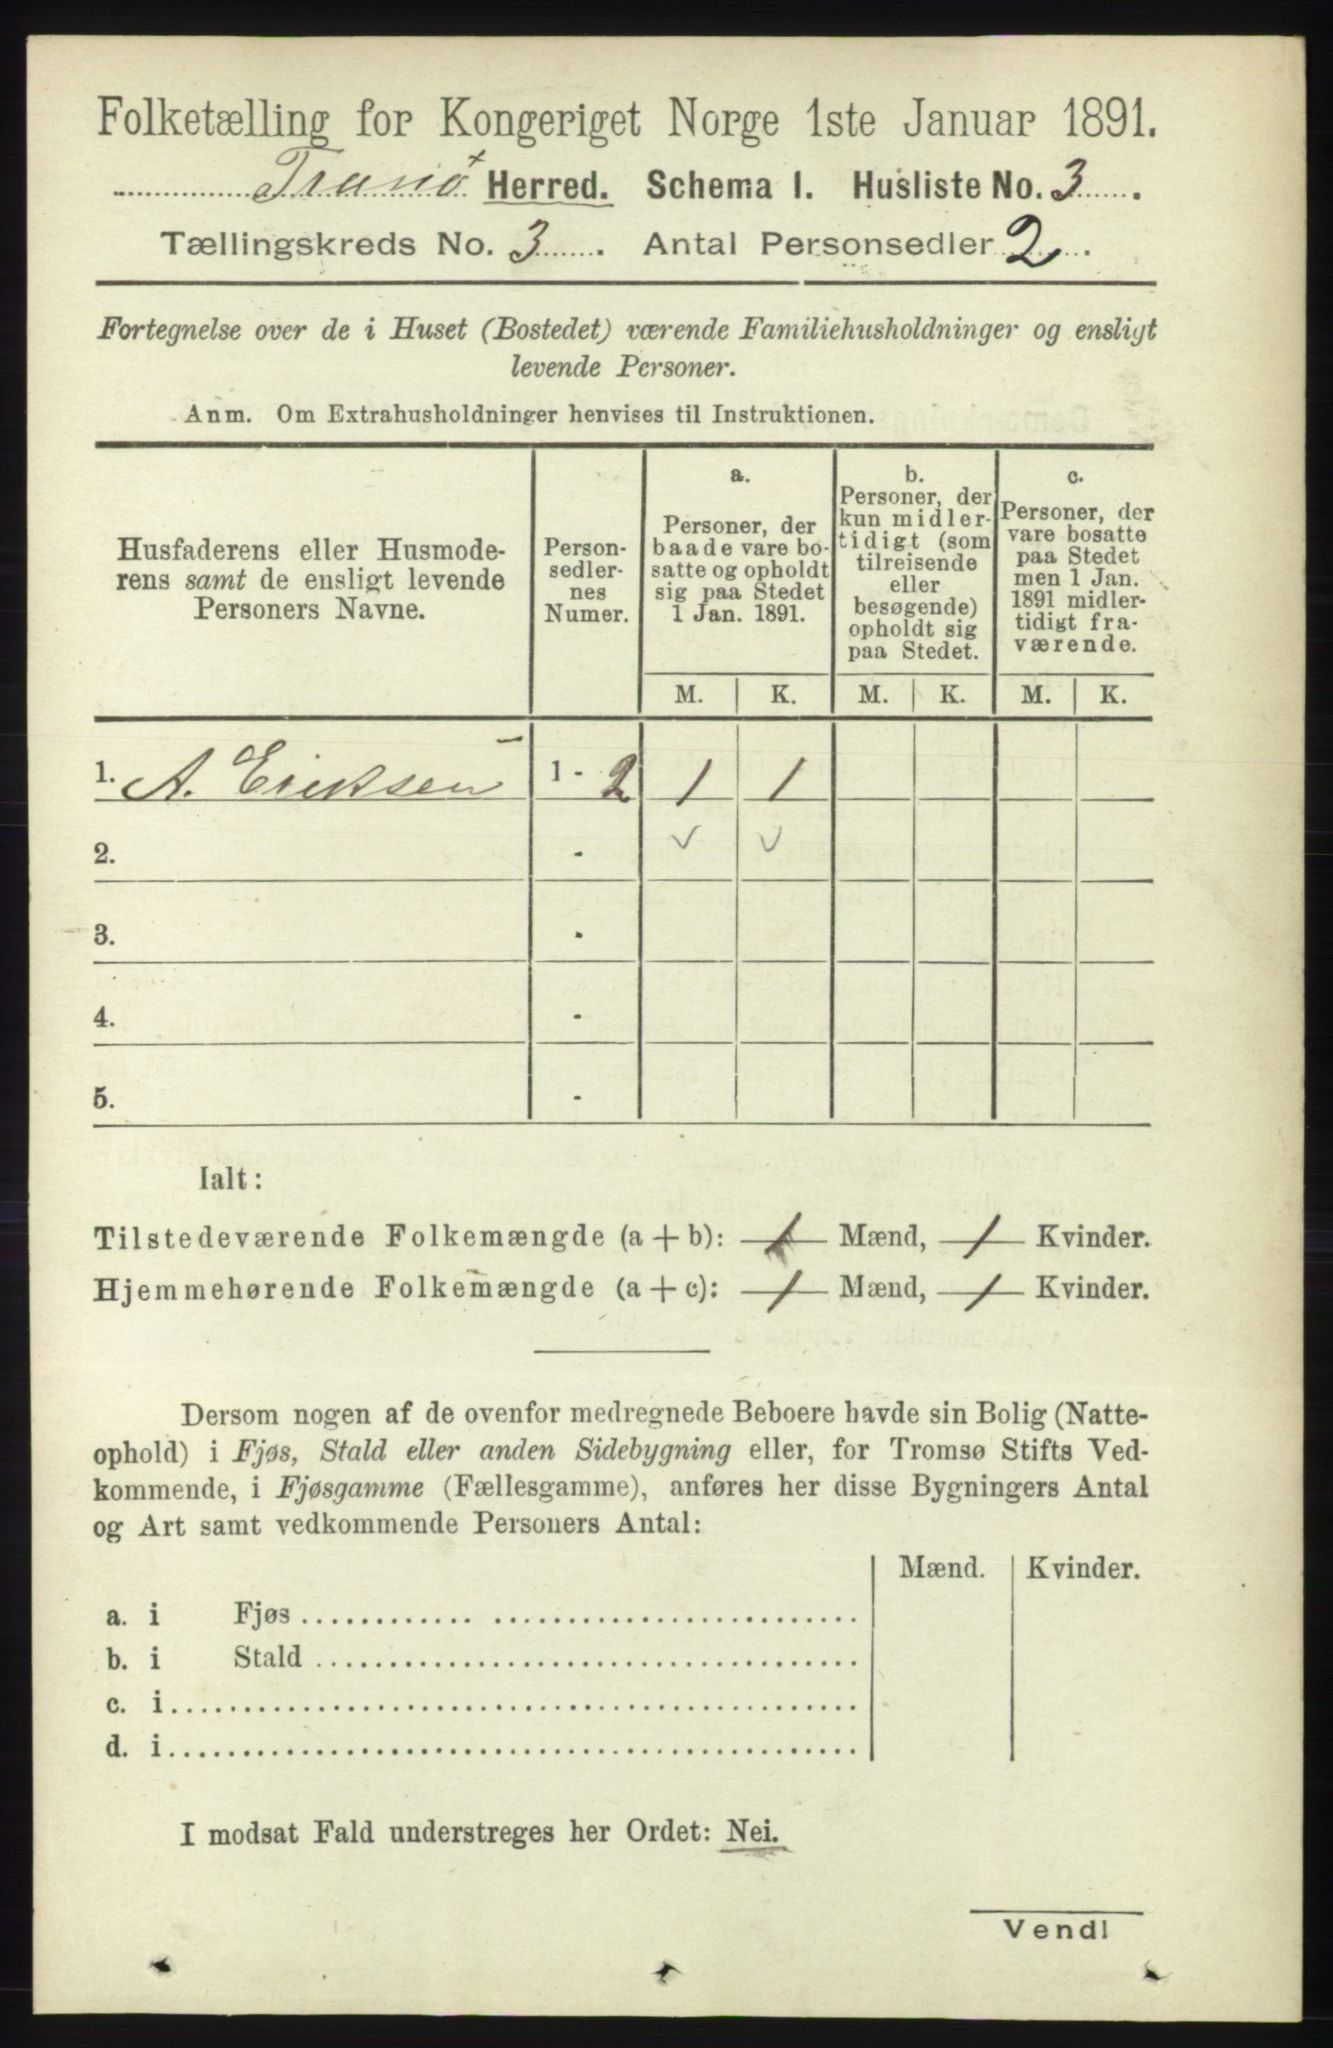 Folketælling for Kongeriget Norge 1ste Januar 1891.
Tranø Herred. Schema I. Husliste No. 3.
Tællingskreds No. 3. Antal Personsedler 2.
Fortegnelse over de i Huset (Bostedet) værende Familiehusholdninger og ensligt
levende Personer.
Anm. Om Extrahusholdninger henvises til Instruktionen.
Husfaderens eller Husmode-
rens samt de ensligt levende
Personers Navne.
Person-
sedler-
nes
Numer.
a.
Personer, der
baade vare bo-
satte og opholdt
sig paa Stedet
1 Jan. 1891.
b.
Personer, der
kun midler-
tidigt (som
tilreisende
eller
besøgende)
opholdt sig
paa Stedet.
c.
Personer, der
vare bosatte
paa Stedet
men 1 Jan.
1891 midler-
tidigt fra-
værende.
M. K. M. K. M. K.
1. A. Eriksen 1 - 2 1 1
2. -
3. -
4. -
5. -
Ialt:
Tilstedeværende Folkemængde (a + b): 1 Mænd, 1 Kvinder.
Hjemmehørende Folkemængde (a + c): 1 Mænd, 1 Kvinder.
Dersom nogen af de ovenfor medregnede Beboere havde sin Bolig (Natte-
ophold) i Fjøs, Stald eller anden Sidebygning eller, for Tromsø Stifts Ved-
kommende, i Fjøsgamme (Fællesgamme), anføres her disse Bygningers Antal
og Art samt vedkommende Personers Antal:
Mænd. Kvinder.
a. i Fjøs
b. i Stald
c. i
d. i
I modsat Fald understreges her Ordet: Nei.
Vend!